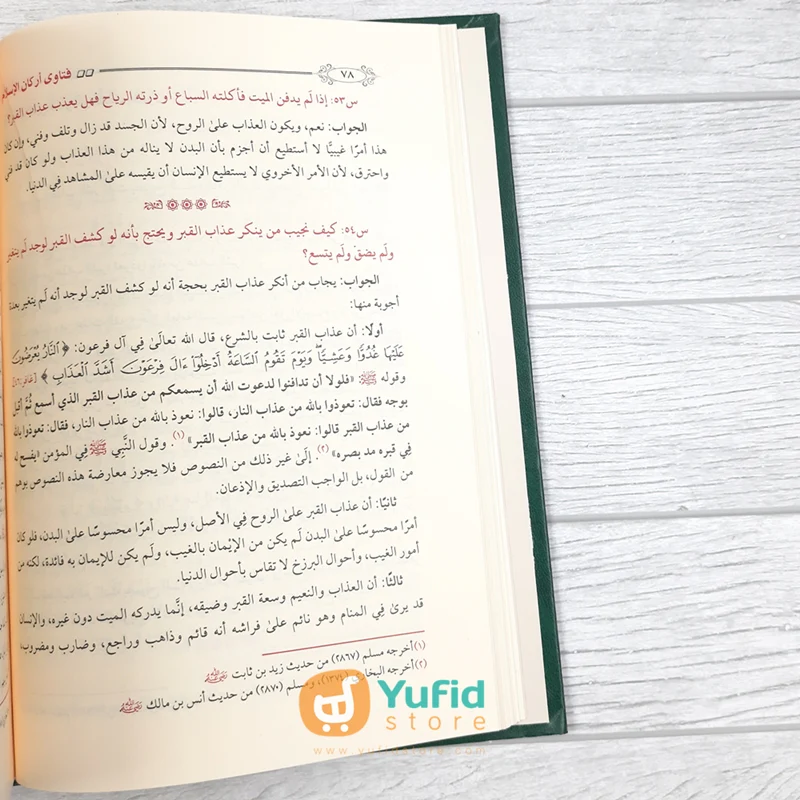 ٧٨
فتاوى أركان الإسلام
س٥٣: إذا لَم يدفن الميت فأكلته السباع أو ذرته الرياح فهل يعذب عذاب القبر؟
الجواب: نعم، ويكون العذاب علىٰ الروح، لأن الجسد قد زال وتلف وفني، وإن كان
هذا أمرًا غيبيًّا لا أستطيع أن أجزم بأن البدن لا يناله من هذا العذاب ولو كان قد فني
واحترق، لأن الأمر الأخروي لا يستطيع الإنسان أن يقيسه علىٰ المشاهد فِي الدنيا.
س٥٤: كيف نجيب من ينكر عذاب القبر ويحتج بأنه لو كشف القبر لوجد لَم يتغير
ولَم يضقْ ولَم يتسع؟
الجواب: يجاب من أنكر عذاب القبر بحجة أنه لو كشف القبر لوجد أنه لَم يتغير بعدة
أجوبة منها:
أولًا: أن عذاب القبر ثابت بالشرع، قال الله تعالَىٰ فِي آل فرعون: ﴿ ٱلنَّارُ يُعْرَضُونَ
عَلَيْهَا غُدُوًّا وَعَشِيًّا ۖ وَيَوْمَ تَقُومُ ٱلسَّاعَةُ أَدْخِلُوٓا۟ ءَالَ فِرْعَوْنَ أَشَدَّ ٱلْعَذَابِ ﴾
وقوله ﷺ «فلولا أن تدافنوا لدعوت الله أن يسمعكم من عذاب القبر الذي أسمع ثُمَّ أقبل
بوجه فقال: تعوذوا بالله من عذاب النار، قالوا: نعوذ بالله من عذاب النار، فقال: تعوذوا بالله
من عذاب القبر قالوا: نعوذ بالله من عذاب القبر»(١). وقول النَّبِي ﷺ فِي المؤمن «يفسح له
فِي قبره مد بصره»(٢). إلَىٰ غير ذلك من النصوص فلا يجوز معارضة هذه النصوص بوهم
من القول، بل الواجب التصديق والإذعان.
ثانيًا: أن عذاب القبر علىٰ الروح فِي الأصل، وليس أمرًا محسوسًا علىٰ البدن، فلو كان
أمرًا محسوسًا علىٰ البدن لَم يكن من الإيْمان بالغيب، ولَم يكن للإيمان به فائدة، لكنه من
أمور الغيب، وأحوال البرزخ لا تقاس بأحوال الدنيا.
ثالثًا: أن العذاب والنعيم وسعة القبر وضيقه، إنَّما يدركه الميت دون غيره، والإنسان
قد يرىٰ فِي المنام وهو نائم علىٰ فراشه أنه قائم وذاهب وراجع، وضارب ومضروب،
(١) أخرجه مسلم (٢٨٦٧) من حديث زيد بن ثابت
(٢) أخرجه البخاري (١٣٧٤)، ومسلم (٢٨٧٠) من حديث أنس بن مالك
Yufid
store